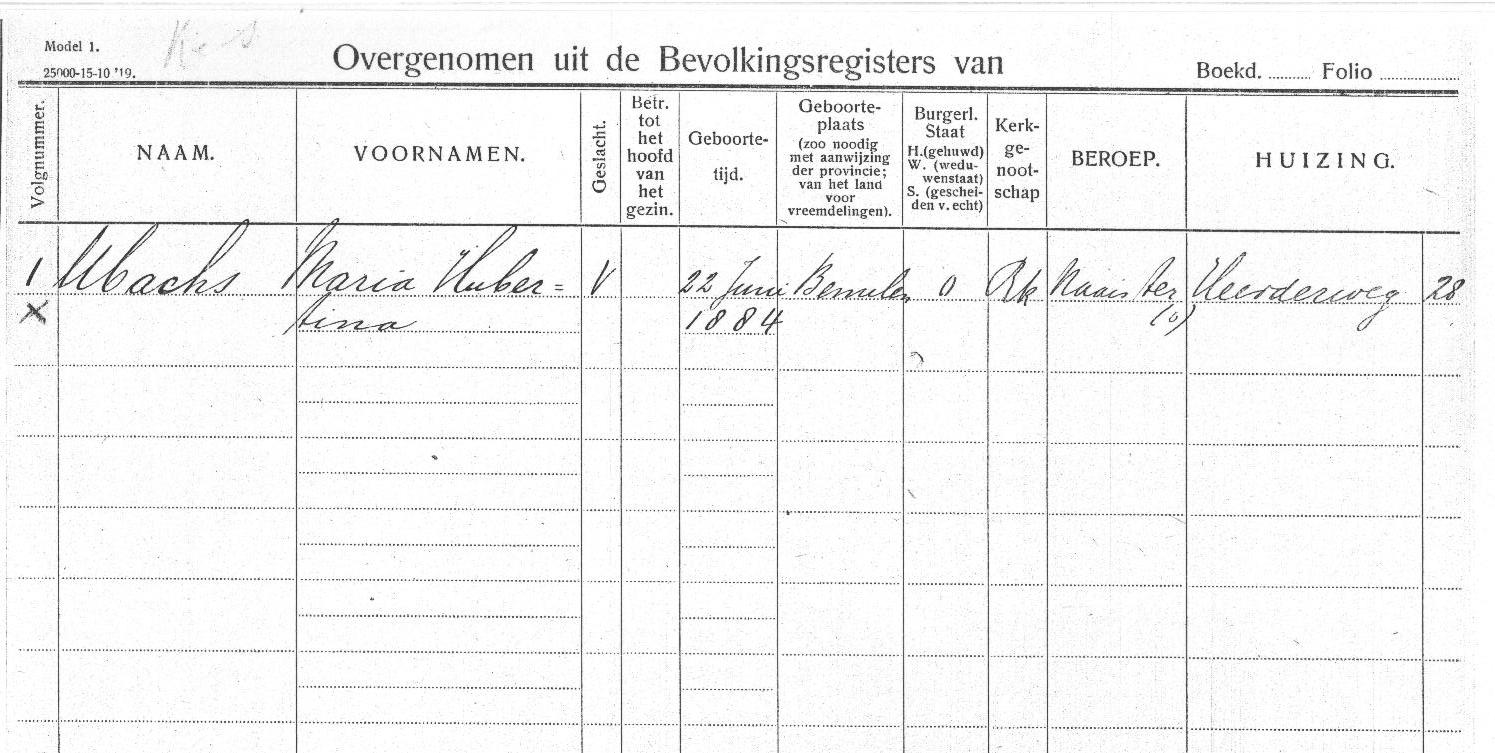 Model 1.
25000-15-10 '19.
Overgenomen uit de Bevolkingsregisters van
Boekd. ........ Folio ............
Volgnummer.
NAAM.
VOORNAMEN.
Geslacht.
Betr.
tot
het
hoofd
van
het
gezin.
Geboorte-
tijd.
Geboorte-
plaats
(zoo noodig
met aanwijzing
der provincie;
van het land
voor
vreemdelingen).
Burgerl.
Staat
H.(gehuwd)
W. (wedu-
wenstaat)
S. (geschei-
den v. echt)
Kerk-
ge-
noot-
schap
BEROEP.
HUIZING.
1 Ubachs Maria Huber= V 22 Juni Bemelen O Rk Naaister Heerderweg 28
X tina 1884 (o)